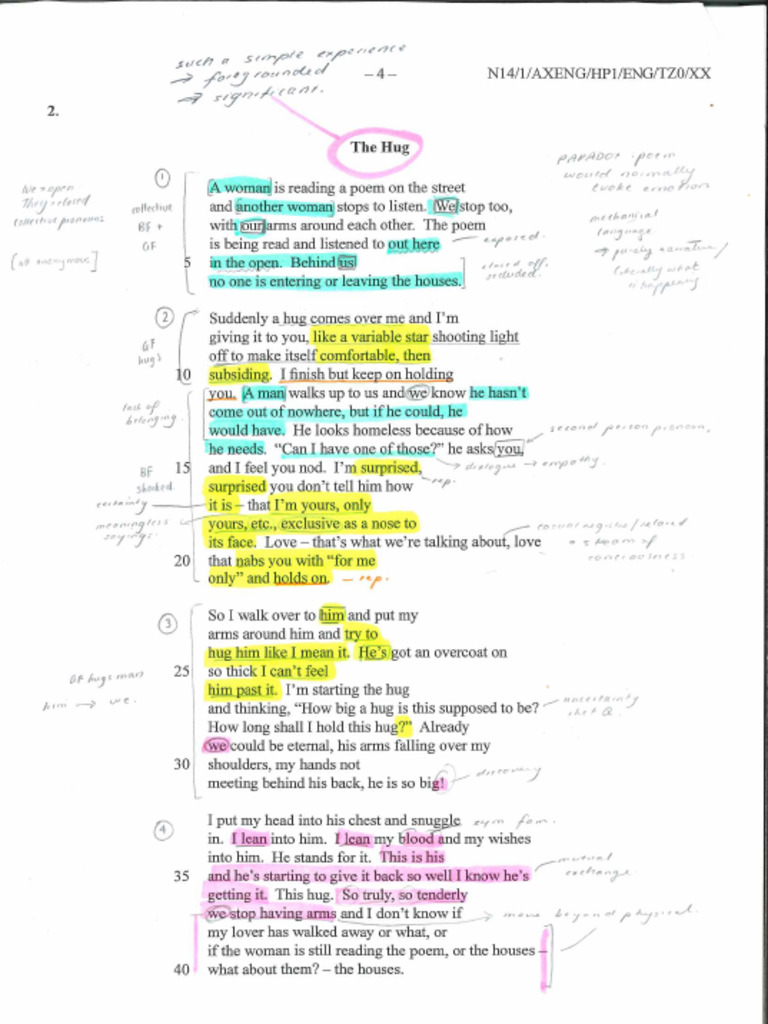 such a simple experience
→ foregrounded
→ significant.
– 4 –
N14/1/AXENG/HP1/ENG/TZ0/XX
2.
The Hug
PARADOX - poem
would normally
evoke emotion
①
We = open
They = closed
collective pronouns
collective
BF +
GF
A woman is reading a poem on the street
and another woman stops to listen. We stop too,
with our arms around each other. The poem
is being read and listened to out here
5 in the open. Behind us
no one is entering or leaving the houses.
exposed.
closed off,
secluded.
mechanical
language
→ purely narrative /
literally what
is happening
②
GF
hugs
Suddenly a hug comes over me and I'm
giving it to you, like a variable star shooting light
off to make itself comfortable, then
10 subsiding. I finish but keep on holding
you. A man walks up to us and we know he hasn't
come out of nowhere, but if he could, he
would have. He looks homeless because of how
he needs. "Can I have one of those?" he asks you,
15 and I feel you nod. I'm surprised,
surprised you don't tell him how
it is – that I'm yours, only
yours, etc., exclusive as a nose to
its face. Love – that's what we're talking about, love
20 that nabs you with "for me
only" and holds on.
lack of
belonging.
BF
shocked.
certainty
meaningless
sayings.
second person pronoun,
dialogue → empathy.
rep.
casual register / relaxed
stream of
consciousness
– rep.
③
GF hugs man
him → we.
So I walk over to him and put my
arms around him and try to
hug him like I mean it. He's got an overcoat on
25 so thick I can't feel
him past it. I'm starting the hug
and thinking, "How big a hug is this supposed to be?
How long shall I hold this hug?" Already
we could be eternal, his arms falling over my
30 shoulders, my hands not
meeting behind his back, he is so big!
uncertainty
discovery
④
I put my head into his chest and snuggle
in. I lean into him. I lean my blood and my wishes
into him. He stands for it. This is his
35 and he's starting to give it back so well I know he's
getting it. This hug. So truly, so tenderly
we stop having arms and I don't know if
my lover has walked away or what, or
if the woman is still reading the poem, or the houses –
40 what about them? – the houses.
mutual
exchange.
→ move beyond physical.